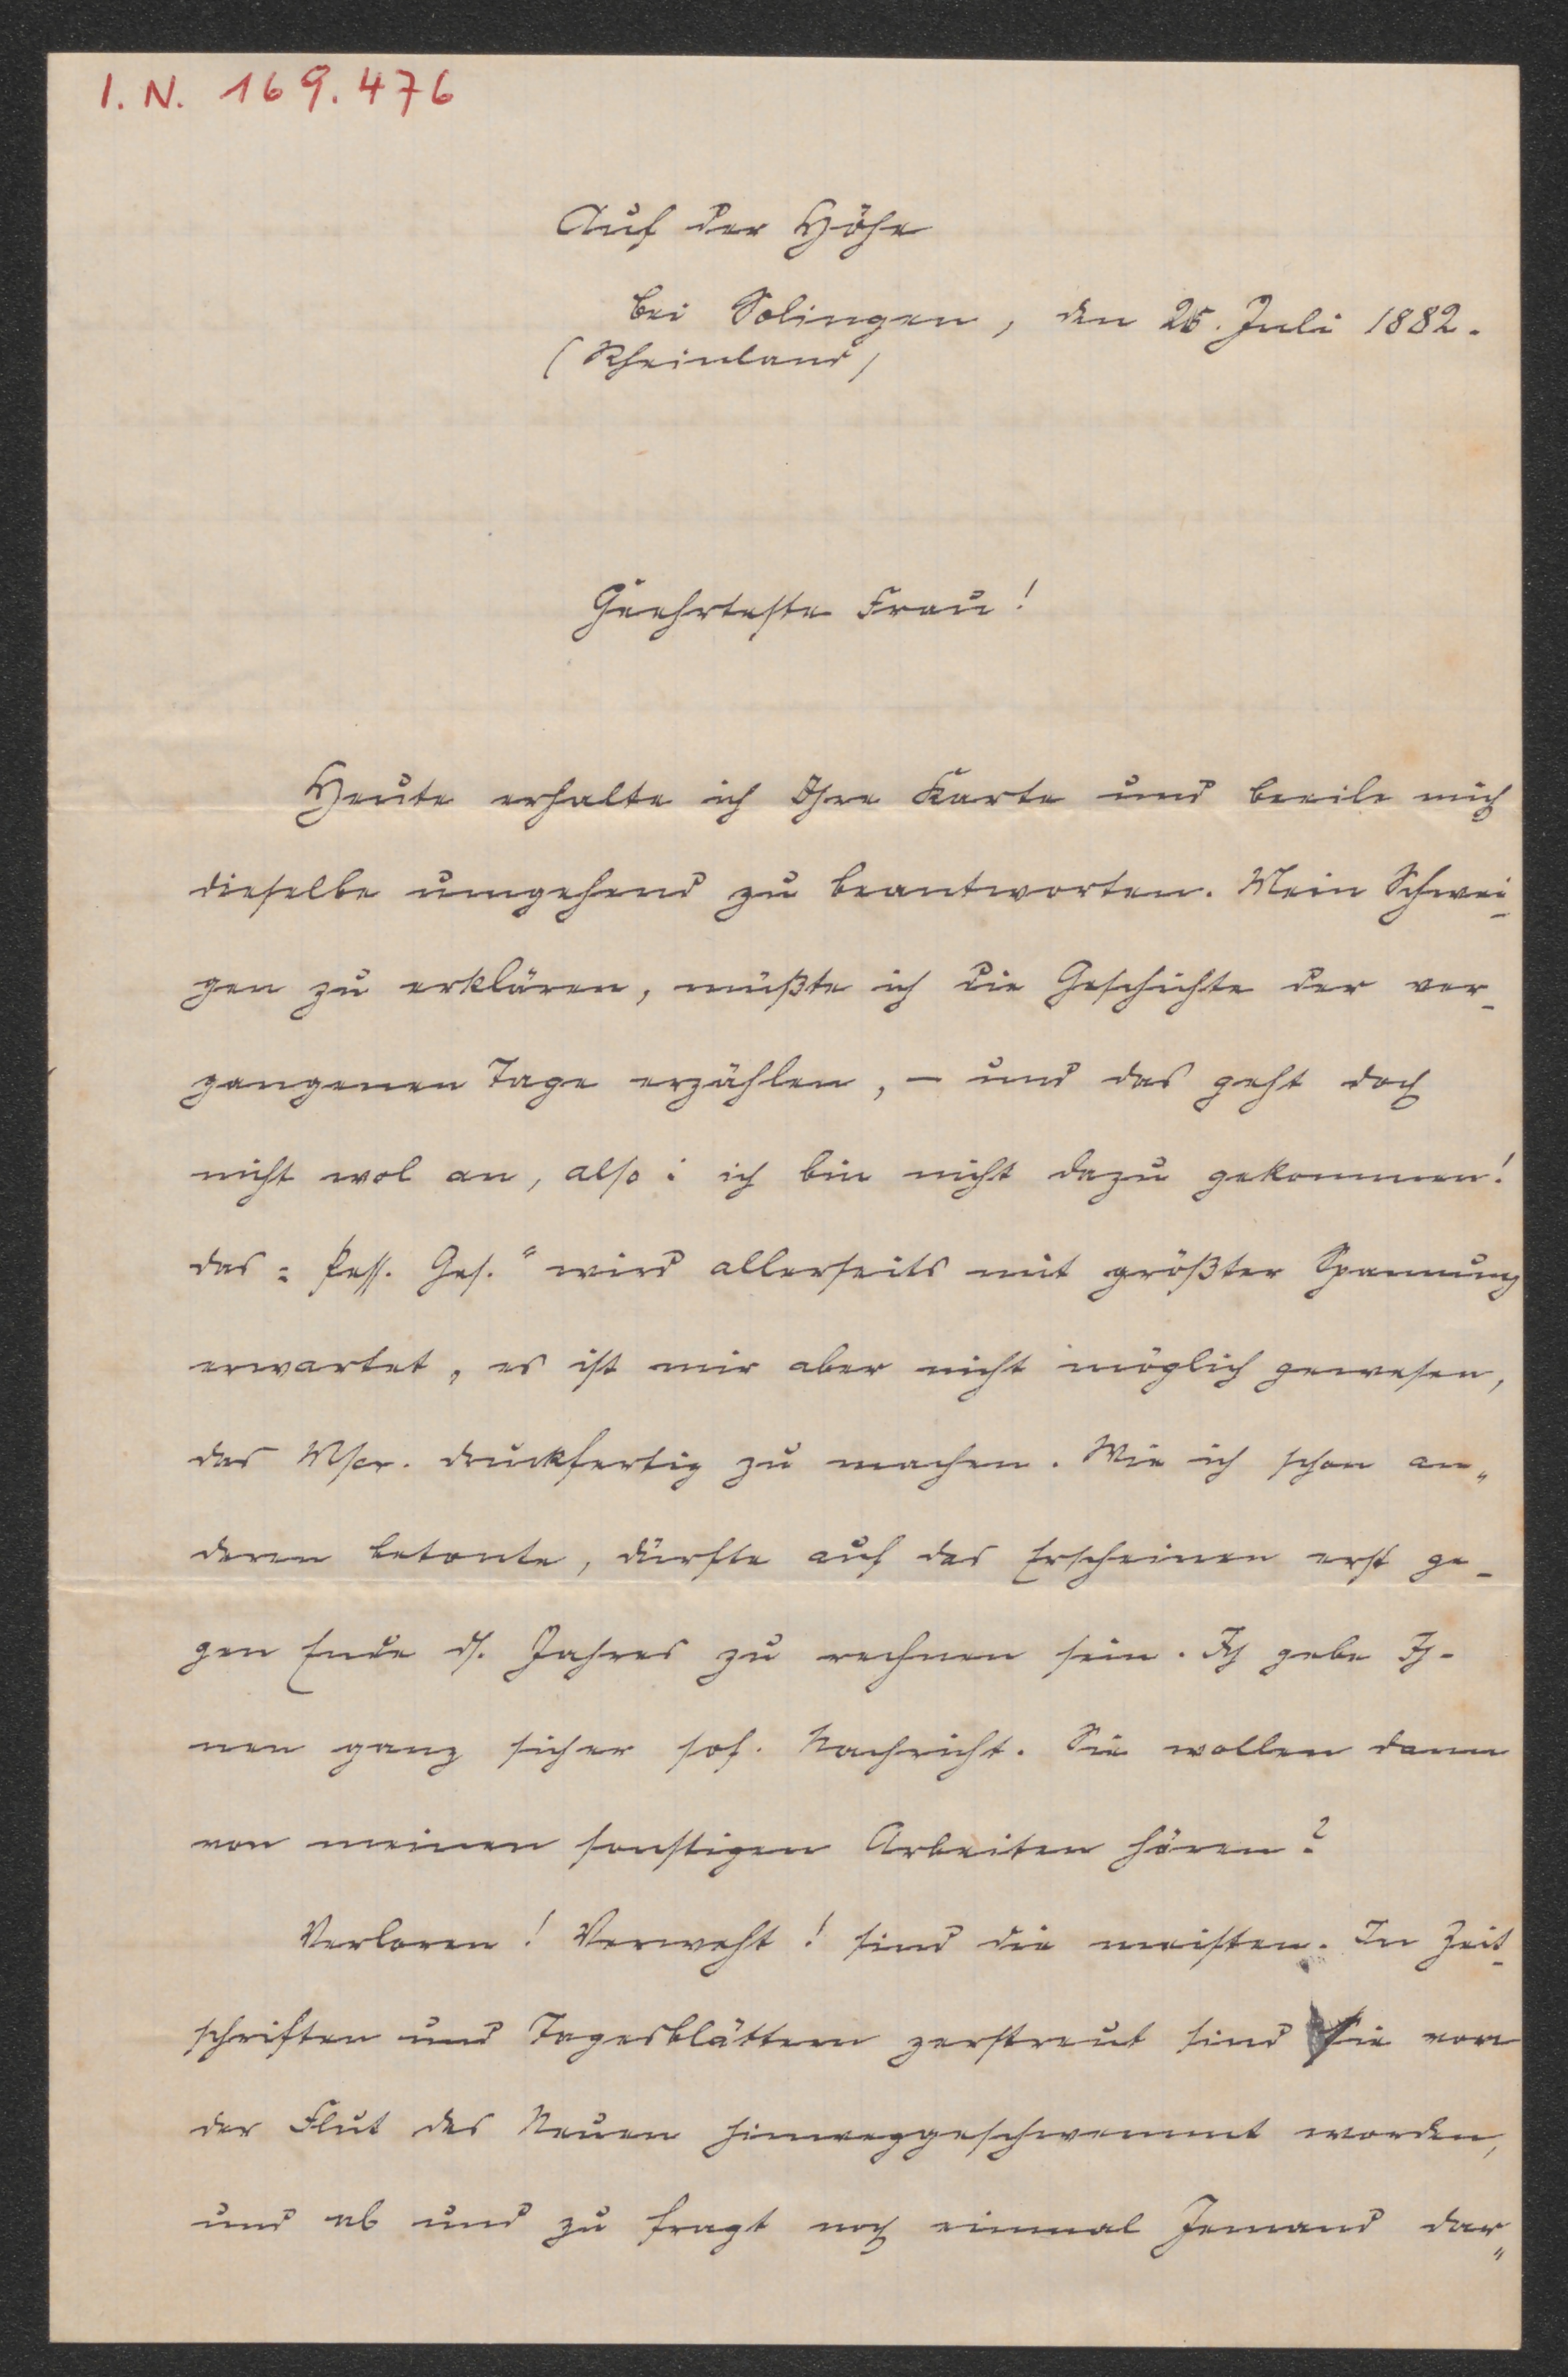 I. N. 169.476
Auf der Höhe
bei Solingen, den 25. Juli 1882.
(Rheinland)
Geehrteste Frau!
Heute erhalte ich Ihre Karte und beeile mich
dieselbe umgehend zu beantworten. Mein Schwei-
gen zu erklären, müßte ich die Geschichte der ver-
gangenen Tage erzählen, – und das geht doch
nicht wol an, also: ich bin nicht dazu gekommen!
das „Pess. Ges.“ wird allerseits mit größter Spannung
erwartet, es ist mir aber nicht möglich gewesen,
das Mscr. druckfertig zu machen. Wie ich schon an-
deren betonte, dürfte auf das Erscheinen erst ge-
gen Ende ds. Jahres zu rechnen sein. Ich gebe Ih-
nen ganz sicher sof. Nachricht. Sie wollen dann
von meinen sonstigen Arbeiten hören?
Verloren! Verweht! sind die meisten. In Zeit-
schriften und Tagesblättern zerstreut sind sie von
der Flut des Neuen hinweggeschwemmt worden,
und ab und zu fragt noch einmal Jemand dar-